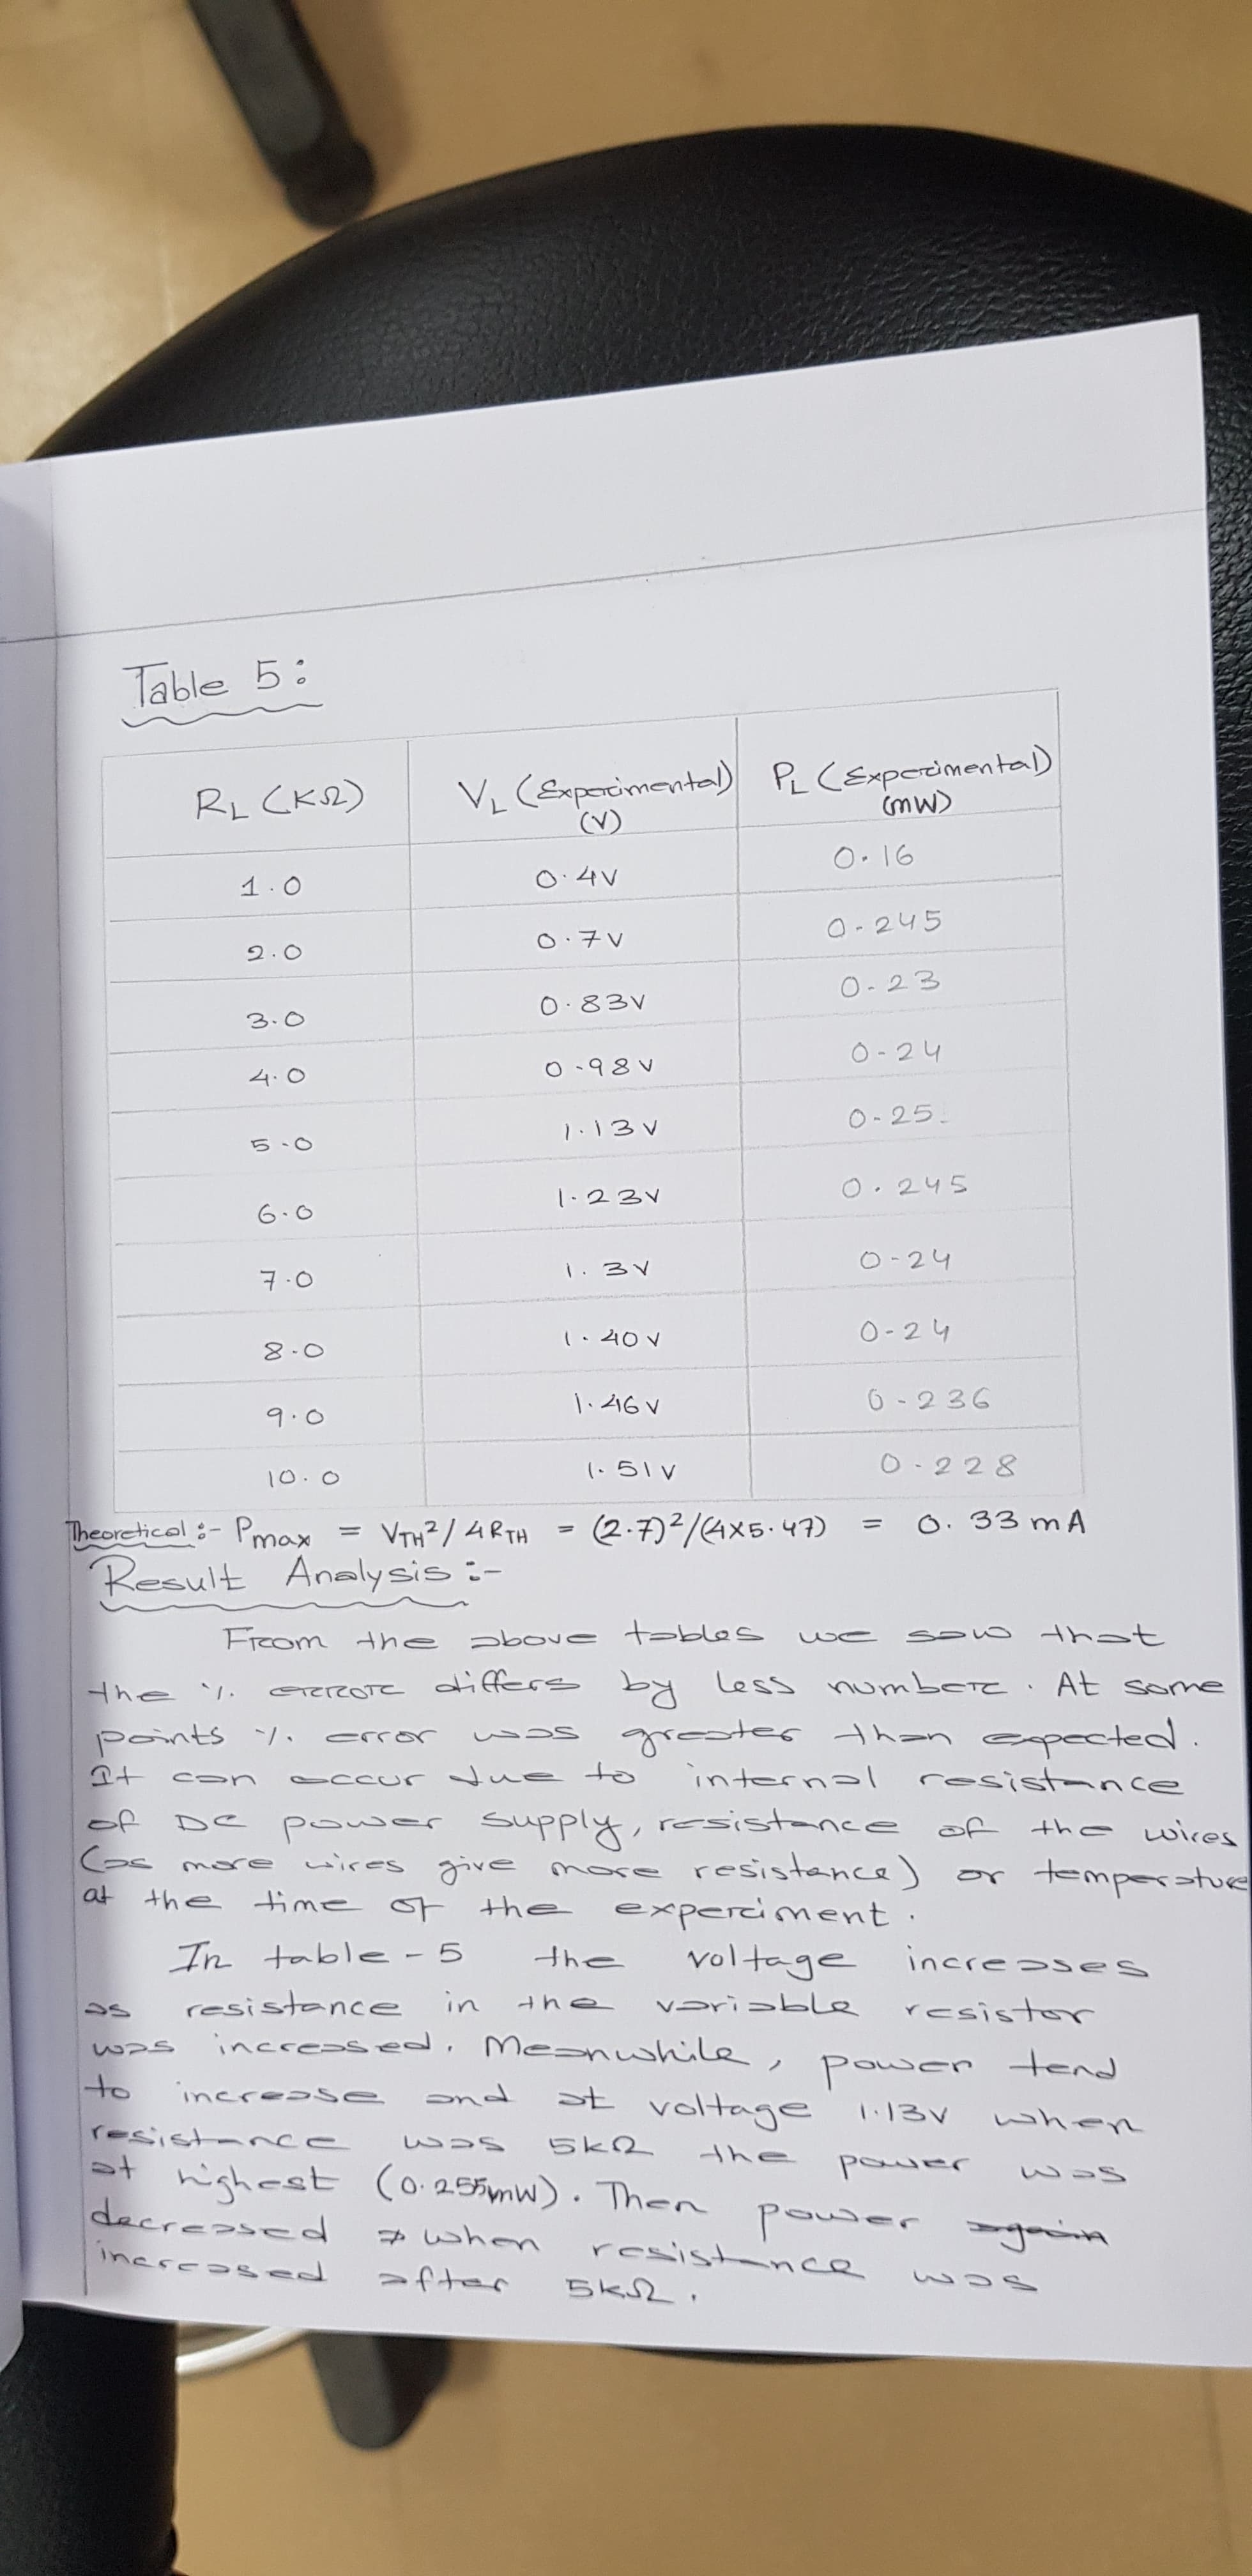 Table 5:
RL (KΩ) VL (Experimental) (V) PL (Experimental) (mW)
1.0 0.4V 0.16
2.0 0.7V 0.245
3.0 0.83V 0.23
4.0 0.98V 0.24
5.0 1.13V 0.25
6.0 1.23V 0.245
7.0 1.3V 0.24
8.0 1.40V 0.24
9.0 1.46V 0.236
10.0 1.51V 0.228
Theoretical :- Pmax = VTH²/4RTH = (2.7)²/(4×5.47) = 0.33 mA
Result Analysis :-
From the above tables we saw that
the % error differs by less number. At some
points % error was greater than expected.
It can occur due to internal resistance
of DC power supply, resistance of the wires
(as more wires give more resistance) or temperature
at the time of the experiment.
In table-5 the voltage increases
as resistance in the variable resistor
was increased. Meanwhile, power tend
to increase and at voltage 1.13V when
resistance was 5kΩ the power was
at highest (0.255mW). Then power again
decreased when resistance was
increased after 5kΩ.